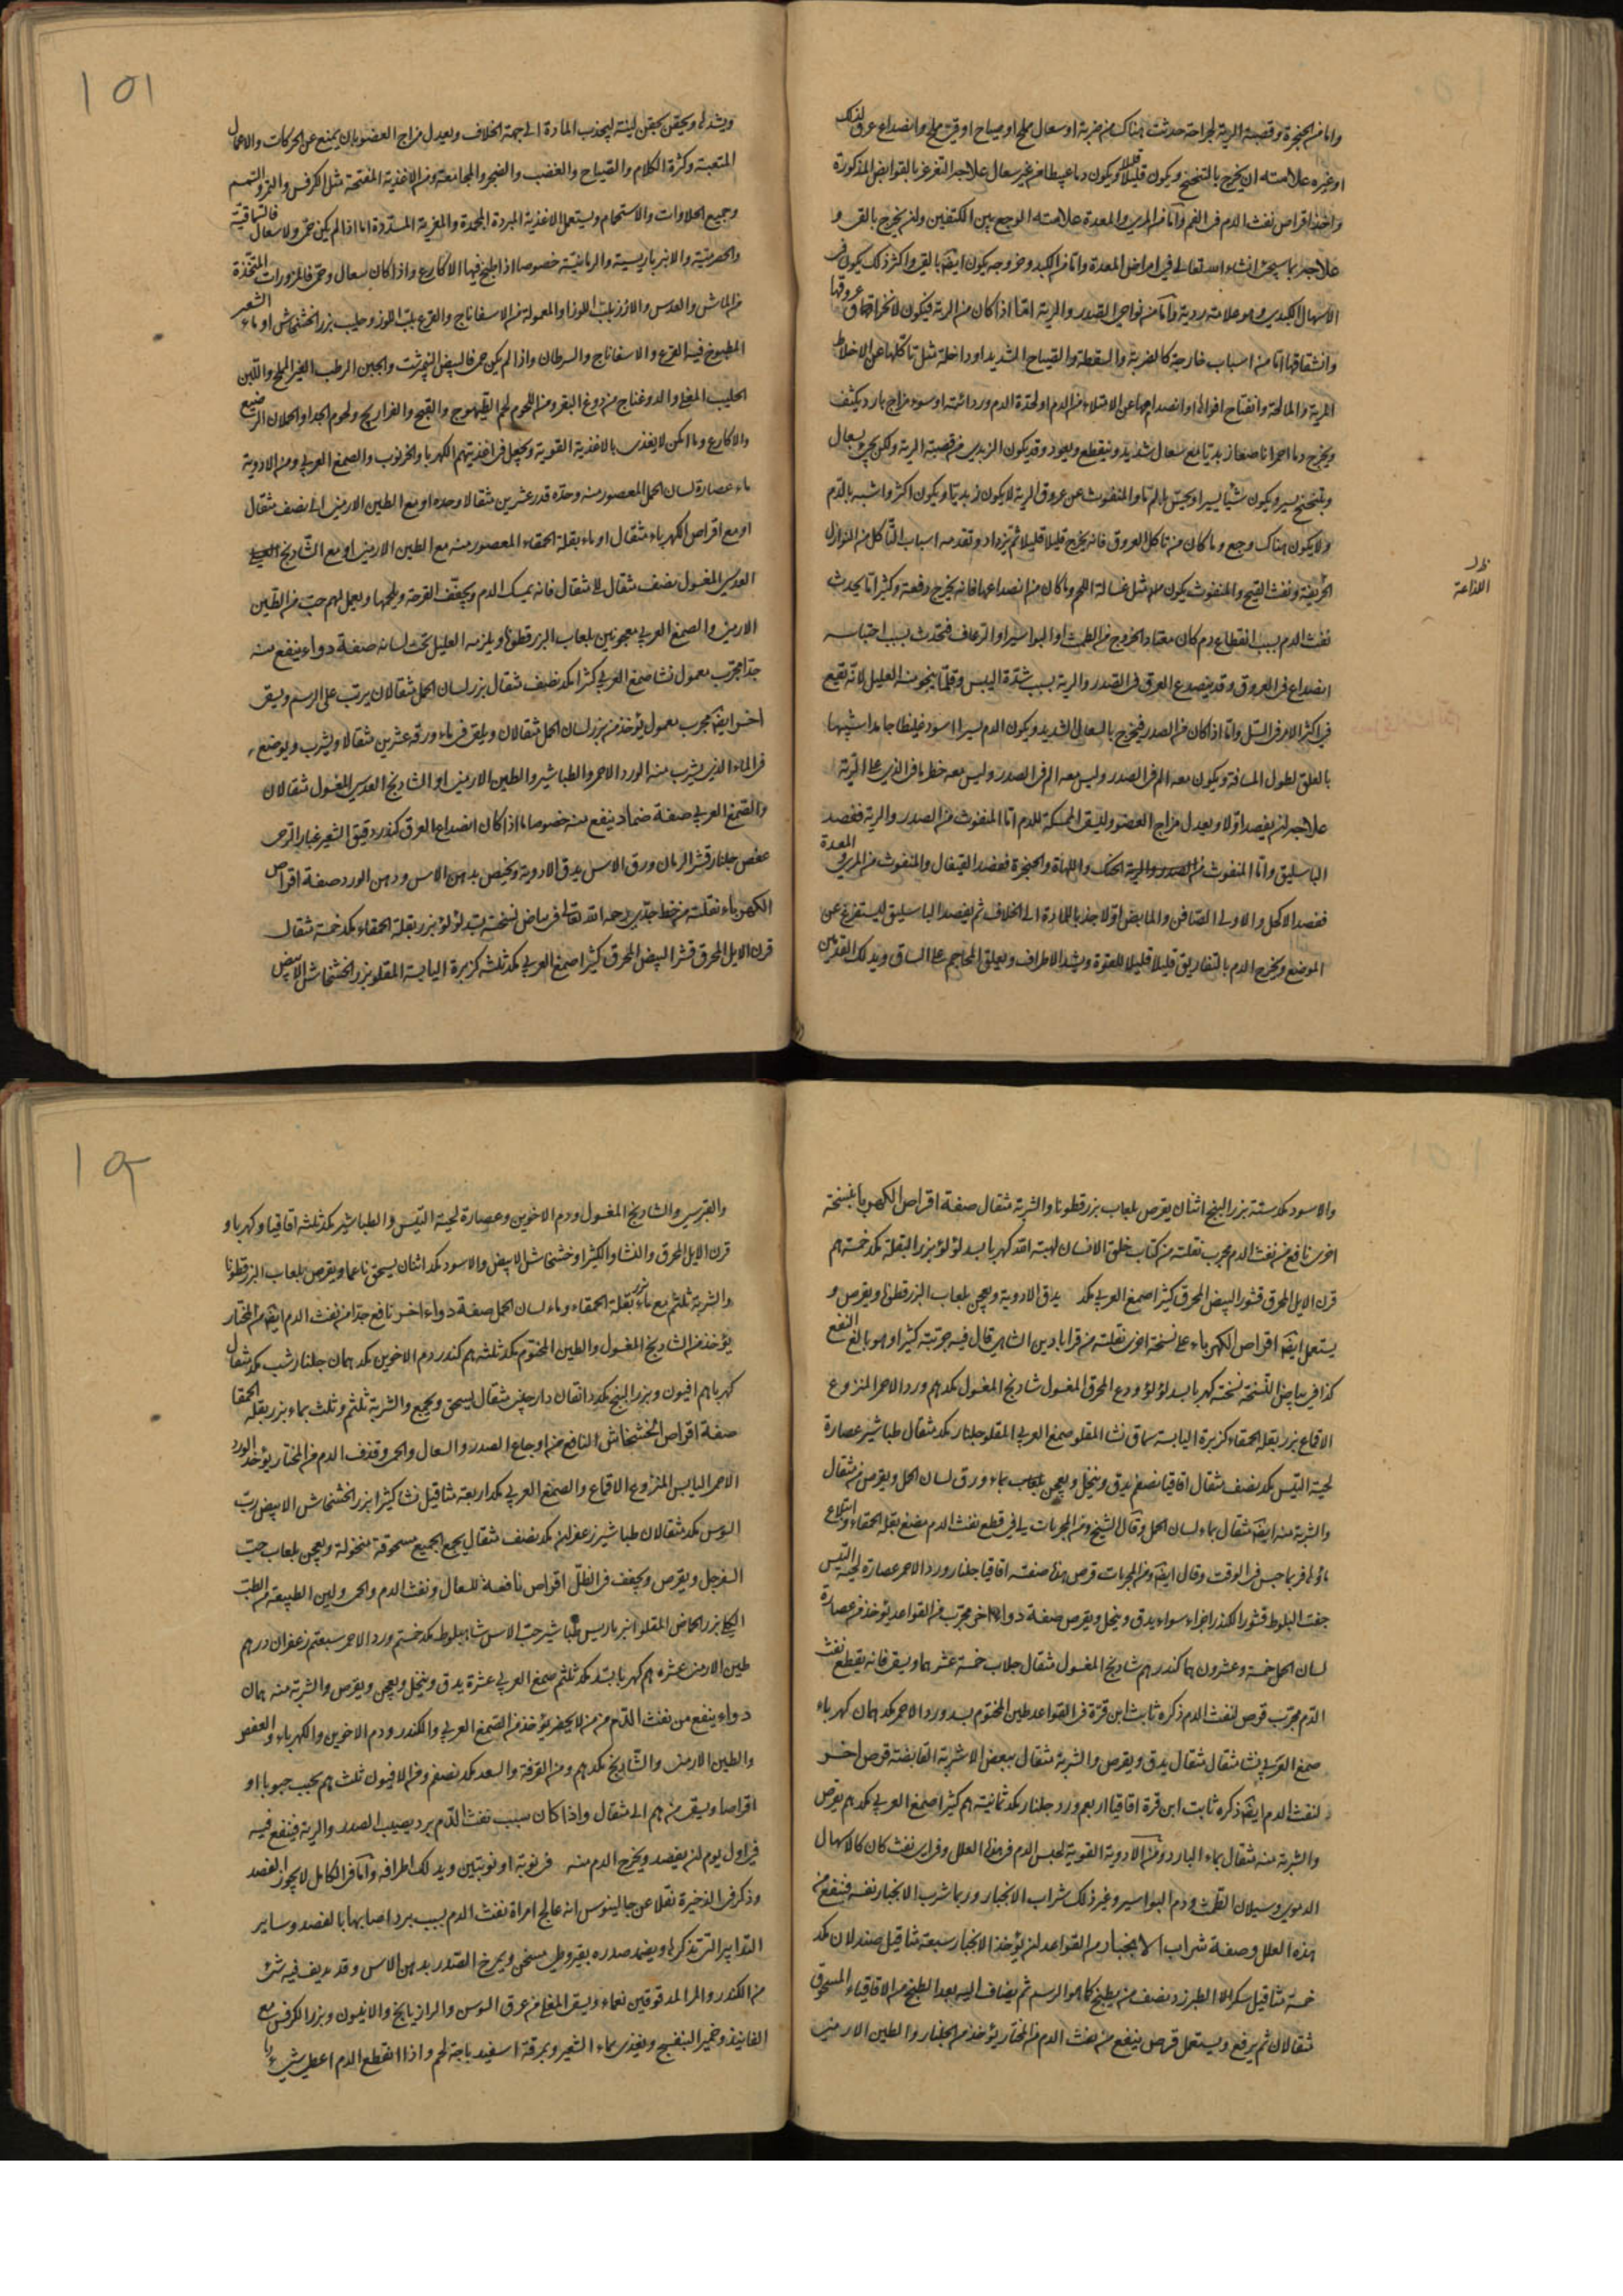 واما من الحنجرة وقصبة الرية لجراحة حدثت هناك من ضربة او سعال ملح او صياح او قئ ملح وانصداع عرق لذلك
او غيره علامته ان يخرج بالتنحنح ويكون قليلا ويكون دما عبيطا من غير سعال علاجه التغرغر بالقوابض المذكورة
واخذ اقراص نفث الدم فى الفم واما من المرى والمعدة علامته الوجع بين الكتفين وان يخرج بالقى و
علاجه ما سيجئ انشاء الله تعالى فى امراض المعدة واما من الكبد وخروجه يكون ايضا بالقى واكثر ذلك يكون فى
الاسهال الكبدى وهو علامة ردية واما من نواحى الصدر والرية اما اذا كان من الرية فيكون لانخراق عروقها
وانشقاقها اما من اسباب خارجة كالضربة والسقطة والصياح الشديد او داخلة مثل تاكلها عن الاخلاط
المرية والمالحة وانفتاح افواهها او انصداعها عن الامتلاء من الدم او لحدة الدم وردائته او سوء مزاج بارد يكثف
ويخرج دما احمر ناصعا زبديا مع سعال شديد وينقطع ويعود وقد يكون الزبدى من قصبة الرية ولكن يجئ بسعال
وبتنحنح يسير ويكون شيئا يسيرا ويحس بالم ما والمنفوث عن عروق الرية لا يكون زبديا ويكون اكثر واشبه بالدم
ولا يكون هناك وجع وما كان من تاكل العروق فانه يخرج قليلا قليلا ثم يزداد وتقدمه اسباب التاكل من النوازل
الحريفة ونفث القيح والمنفوث يكون مثل غسالة اللحم وما كان من انصداعها فانه يخرج دفعة وكثيرا ما يحدث
اللذاعة
نفث الدم بسبب انقطاع دم كان معتادا لخروج من الطمث او البواسير او الرعاف فتحدث بسبب احتباسه
انصداع فى العروق وقد ينصدع العرق فى الصدر والرية بسبب شدة اليبس وقلما ينجو منه العليل لانه يقع
فى اكثر الامر فى السل واما اذا كان من الصدر فيخرج بالسعال الشديد ويكون الدم يسيرا اسود غليظا جامدا شبيها
بالعلق لطول المسافة ويكون معه الم فى الصدر وليس معه خطر ما فى الذى من الرية
علاجه ان يفصد اولا ويعدل مزاج العضو وليسق الممسكة للدم اما المنفوث من الصدر والرية ففصد
الباسليق واما المنفوث من الحنك واللهاة والحنجرة ففصد القيفال والمنفوث من المرى والمعدة
ففصد الاكحل والاولى الصافن والمابض اولا جذبا للمادة الى الخلاف ثم يفصد الباسليق ليستفرغ عن
الموضع ويخرج الدم بالتفاريق قليلا قليلا للقوة ويشد الاطراف ويعلق المحاجم على الساق ويدلك القدمين
١٥١
ويشدها ويحقن بحقن لينة ليجذب المادة الى جهة الخلاف ويعدل مزاج العضو بان يمنع عن الحركات والاعمال
المتعبة وكثرة الكلام والصياح والغضب والضجر والمجامعة ومن الاغذية المفتحة مثل الكرفس والسمسم
وجميع الحلاوات والاستحمام ويستعمل الاغذية المبردة المجمدة والمغرية المسددة اما اذا لم يكن حمى ولا سعال فالسماقية
والحصرمية والانبرباريسية والرمانية خصوصا اذا طبخ فيها الاكارع واذا كان سعال وحمى فالمزورات المتخذة
من الماش والعدس والارز بلب اللوز او المعمولة من الاسفاناج والقرع بلب اللوز وحليب بزر الخشخاش او ماء الشعير
المطبوخ فيه القرع والاسفاناج والسرطان واذا لم يكن حمى فالبيض النيمبرشت والجبن الرطب الغير المملح واللبن
الحليب المغلى والدوغناج من دوغ البقر ومن اللحوم لحم الطيهوج والقبج والفراريج ولحوم الجدا والحملان الرضيع
والاكارع وما امكن لا يغذى بالاغذية القوية ويجعل فى اغذيتهم الكهربا والخرنوب والصمغ العربى ومن الادوية
ماء عصارة لسان الحمل المعصور منه وحده قدر عشرين مثقالا وحده او مع الطين الارمنى الى نصف مثقال
او مع اقراص الكهرباء مثقال او ماء بقلة الحمقاء المعصور منه مع الطين الارمنى او مع الشادنج
العدسى المغسول نصف مثقال الى مثقال فانه يمسك الدم ويجفف القرحة ويلحمها ويعمل لهم حب من الطين
الارمنى والصمغ العربى معجونين بلعاب البزرقطونا ويلزمه العليل تحت لسانه صفة دواء ينفع منه
جدا مجرب معمول نشا صمغ العربى كثيرا مكد نصف مثقال بزر لسان الحمل مثقالان يرتب على الرسم ويسقى
اخر ايضا مجرب معمول يؤخذ من بزر لسان الحمل مثقالان ويلقى فى ماء ورقه عشرين مثقالا ويشرب ويوضع
فى الماء الذى يشرب منه الورد الاحمر والطباشير والطين الارمنى او الشادنج العدسى المغسول مثقالان
والصمغ العربى صفة ضماد ينفع منه خصوصا ما اذا كان انصداع العرق كندر دقيق الشعير غبار الرحى
عفص جلنار قشر الرمان ورق الاس يدق الادوية ويخبص بدهن الاس ودهن الورد صفة اقراص
الكهرباء نقلته من خط جدى رحمه الله تعالى فى بياض نسخة بسد لؤلؤ بزر بقلة الحمقاء مكد خمسة مثقال
قرن الايل المحرق قشر البيض المحرق كثيرا صمغ العربى مكد ثلثه كزبرة اليابسة المقلو بزر الخشخاش الابيض
والاسود مكد ستة بزر البنج اثنان يقرص بلعاب بزرقطونا والشربة مثقال صفة اقراص الكهربا بنسخة
اخرى نافع من نفث الدم مجرب نقلته من كتاب خلق الانسان لهبة الله كهربا بسد لؤلؤ بزر البقلة مكد خمسة
قرن الايل المحرق قشور البيض المحرق كثيرا صمغ العربى مكد يدق الادوية ويعجن بلعاب البزرقطونا ويقرص و
يستعمل ايضا اقراص الكهرباء على نسخة اخرى نقلته من قرابادين الشاهى قال فيه جربته كثيرا وهو بالغ النفع
كذا فى بياض النسخة نسخته كهربا بسد لؤلؤ وودع المحرق المغسول شادنج المغسول مكد ورد الاحمر المنزوع
الاقماع بزر بقلة الحمقاء كزبرة اليابسة سماق نشا المقلو صمغ العربى المقلو جلنار مكد مثقال طباشير عصارة
لحية التيس مكد نصف مثقال اقاقيا نصفه يدق وينخل ويعجن بماء ورق لسان الحمل ويقرص من مثقال
والشربة منه ايضا مثقال بماء لسان الحمل وقال الشيخ ومن المجربات فى قطع نفث الدم مضغ بقلة الحمقاء وابتلاع
مائها فربما حبس فى الوقت وقال ايضا ومن المجربات قرص هذا صفته اقاقيا جلنار ورد الاحمر عصارة لحية التيس
جفت البلوط قشور الكندر اجزاء سواء يدق وينخل ويقرص صفة دواء اخر مجرب من القواعد يؤخذ من عصارة
لسان الحمل خمسة وعشرون كندر شادنج المغسول مثقال جلاب خمسة عشر ويسقى فانه يقطع نفث
الدم مجرب قرص لنفث الدم ذكره ثابت ابن قرة فى القواعد طين المختوم بسد ورد الاحمر مكد كهرباء
صمغ العربى نشا مثقال مثقال يدق ويقرص والشربة مثقال ببعض الاشربة القابضة قرص اخر
لنفث الدم ايضا ذكره ثابت ابن قرة اقاقيا اربع ورد جلنار مكد ثمانية كثيرا صمغ العربى مكد يقرص
والشربة منه مثقال بماء البارد ومن الادوية القوية لحبس الدم فى هذه العلل وفى اى نفث كان كالاسهال
الدموى وسيلان الطمث ودم البواسير وغير ذلك شراب الانجبار وربما شرب الانجبار نفسه فنفع من
هذه العلل وصفة شراب الانجبار من القواعد ان يؤخذ الانجبار سبعة مثاقيل صندلان مكد
خمسة مثاقيل سكر الطبرزد نصف من يطبخ كما هو الرسم ثم يضاف اليه بعد الطبخ من الاقاقيا المسحوق
مثقالان ثم يرفع ويستعمل قرص ينفع من نفث الدم من المختار يؤخذ من الجلنار والطين الارمنى
والقبرسى والشادنج المغسول ودم الاخوين وعصارة لحية التيس والطباشير مكد ثلثه اقاقيا وكهربا و
قرن الايل المحرق والنشا والكثيرا وخشخاش الابيض والاسود مكد اثنان يسحق ناعما ويقرص بلعاب البزرقطونا
والشربة ثلثه مع ماء بزر بقلة الحمقاء وماء لسان الحمل صفة دواء اخر نافع جدا من نفث الدم ايضا من المختار
يؤخذ من الشادنج المغسول والطين المختوم مكد ثلثه كندر دم الاخوين مكد جلنار شب مكد مثقال
كهربا افيون وبزر البنج مكد دانقان دارچينى مثقال يسحق ويجمع والشربة ثلثه وثلث بماء بزر بقلة الحمقا
صفة اقراص الخشخاش النافع من اوجاع الصدر والسعال والحمى وقذف الدم من المختار يؤخذ الورد
الاحمر اليابس المنزوع الاقماع والصمغ العربى مكد اربعة مثاقيل نشا كثيرا بزر الخشخاش الابيض رب
السوس مكد مثقالان طباشير زعفران مكد نصف مثقال يجمع الجميع مسحوقة منخولة ويعجن بلعاب حب
السفرجل ويقرص ويجفف فى الظل اقراص نافعة للسعال ونفث الدم والحمى ولين الطبيعة من الطب
بزر الحماض المقلو انبرباريس طباشير حب الاس شاه بلوط مكد خمسة ورد الاحمر سبعة زعفران درهم
طين الارمنى عشرة كهربا بسد مكد ثلثه صمغ العربى عشرة يدق وينخل ويعجن ويقرص والشربة منه
دواء ينفع من نفث الدم يؤخذ من الصمغ العربى والكندر ودم الاخوين والكهرباء والعفص
والطين الارمنى والشادنج مكد ومن القرفة والسعد مكد نصفه ومن الافيون ثلث يحبب حبوبا او
اقراصا ويسقى منه الى مثقال واذا كان سبب نفث الدم برد يصيب الصدر والرية فينفع فيه
فى اول يوم ان يفصد ويخرج الدم منه فى نوبة او نوبتين ويدلك اطرافه واما فى الكامل لا يجوز الفصد
وذكر فى الذخيرة نقلا عن جالينوس انه عالج امراة نفث الدم بسبب برد اصابها بالفصد وساير
التدابير التى تذكر ويضمد صدره بقيروطى مسخن ويمرخ الصدر بدهن الاس وقد يديف فيه شئ
من الكندر والمر المدقوقين نعما ويسقى المغلى من عرق السوس والرازيانج والانيسون وبزر الكرفس مع
الفانيذ وخمير البنفسج ويغذى بماء الشعير وبمرقة اسفيدباجة لحم واذا انقطع الدم اعطى شئ